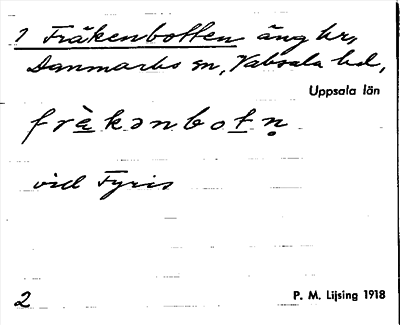 1 Fräkenbotten äng hr,
Danmarks sn, Vaksala hd,
Uppsala län
frὲkənbotn̥
vid Fyris
2
P. M. Lijsing 1918